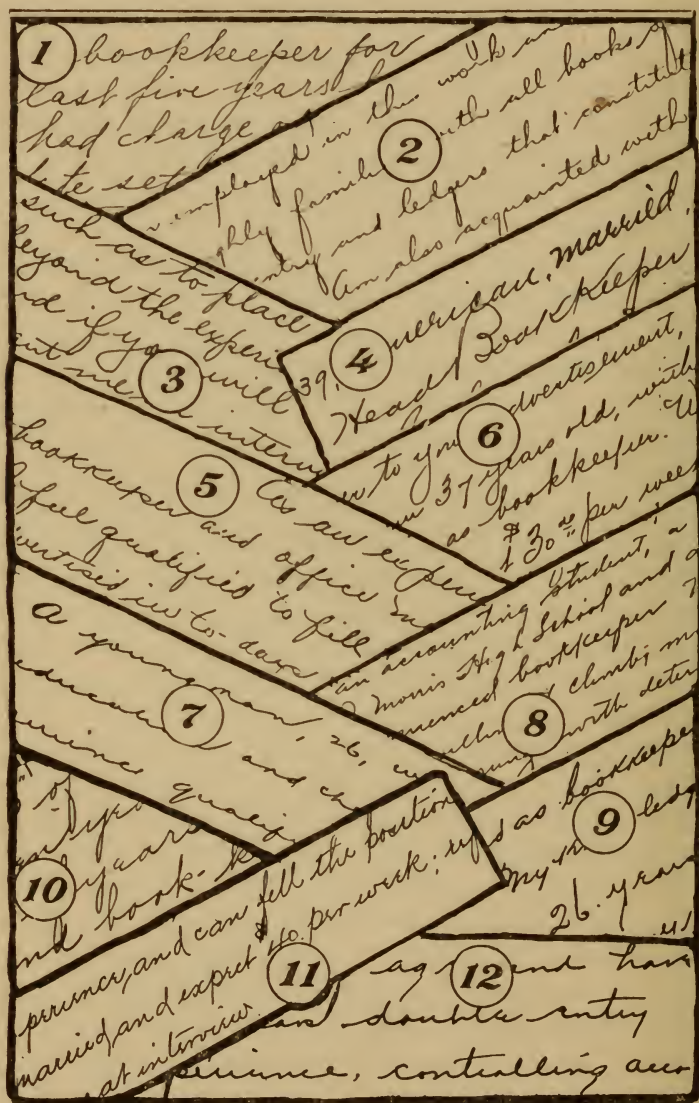 1
bookkeeper for
last five years
had charge
set
2
employed in this work an
ghly famili with all books of
ntry and ledgers that constitut
Am also acquainted with
3
such as to place
beyond the experi
nd if you will
ant me interv
4
merican, married,
39,
Head Bookkeeper
5
bookkeeper and office
As an exper
feel qualified to fill
vertised in to-days
6
er to you dvertisement,
37 years old, with
as bookkeeper.
$30 00 per wee
7
A young man, 26,
educa and
rience qualif
8
an accounting student, a
Morris High School and a
rienced bookkeeper
climb; m
with deter
9
as bookkeepe
my ledg
26 years
10
of
years
nd book-k
11
perience, and can fill the position
married, and expect $40. per week;
at interview
12
age and have
double entry
perience, controlling acco